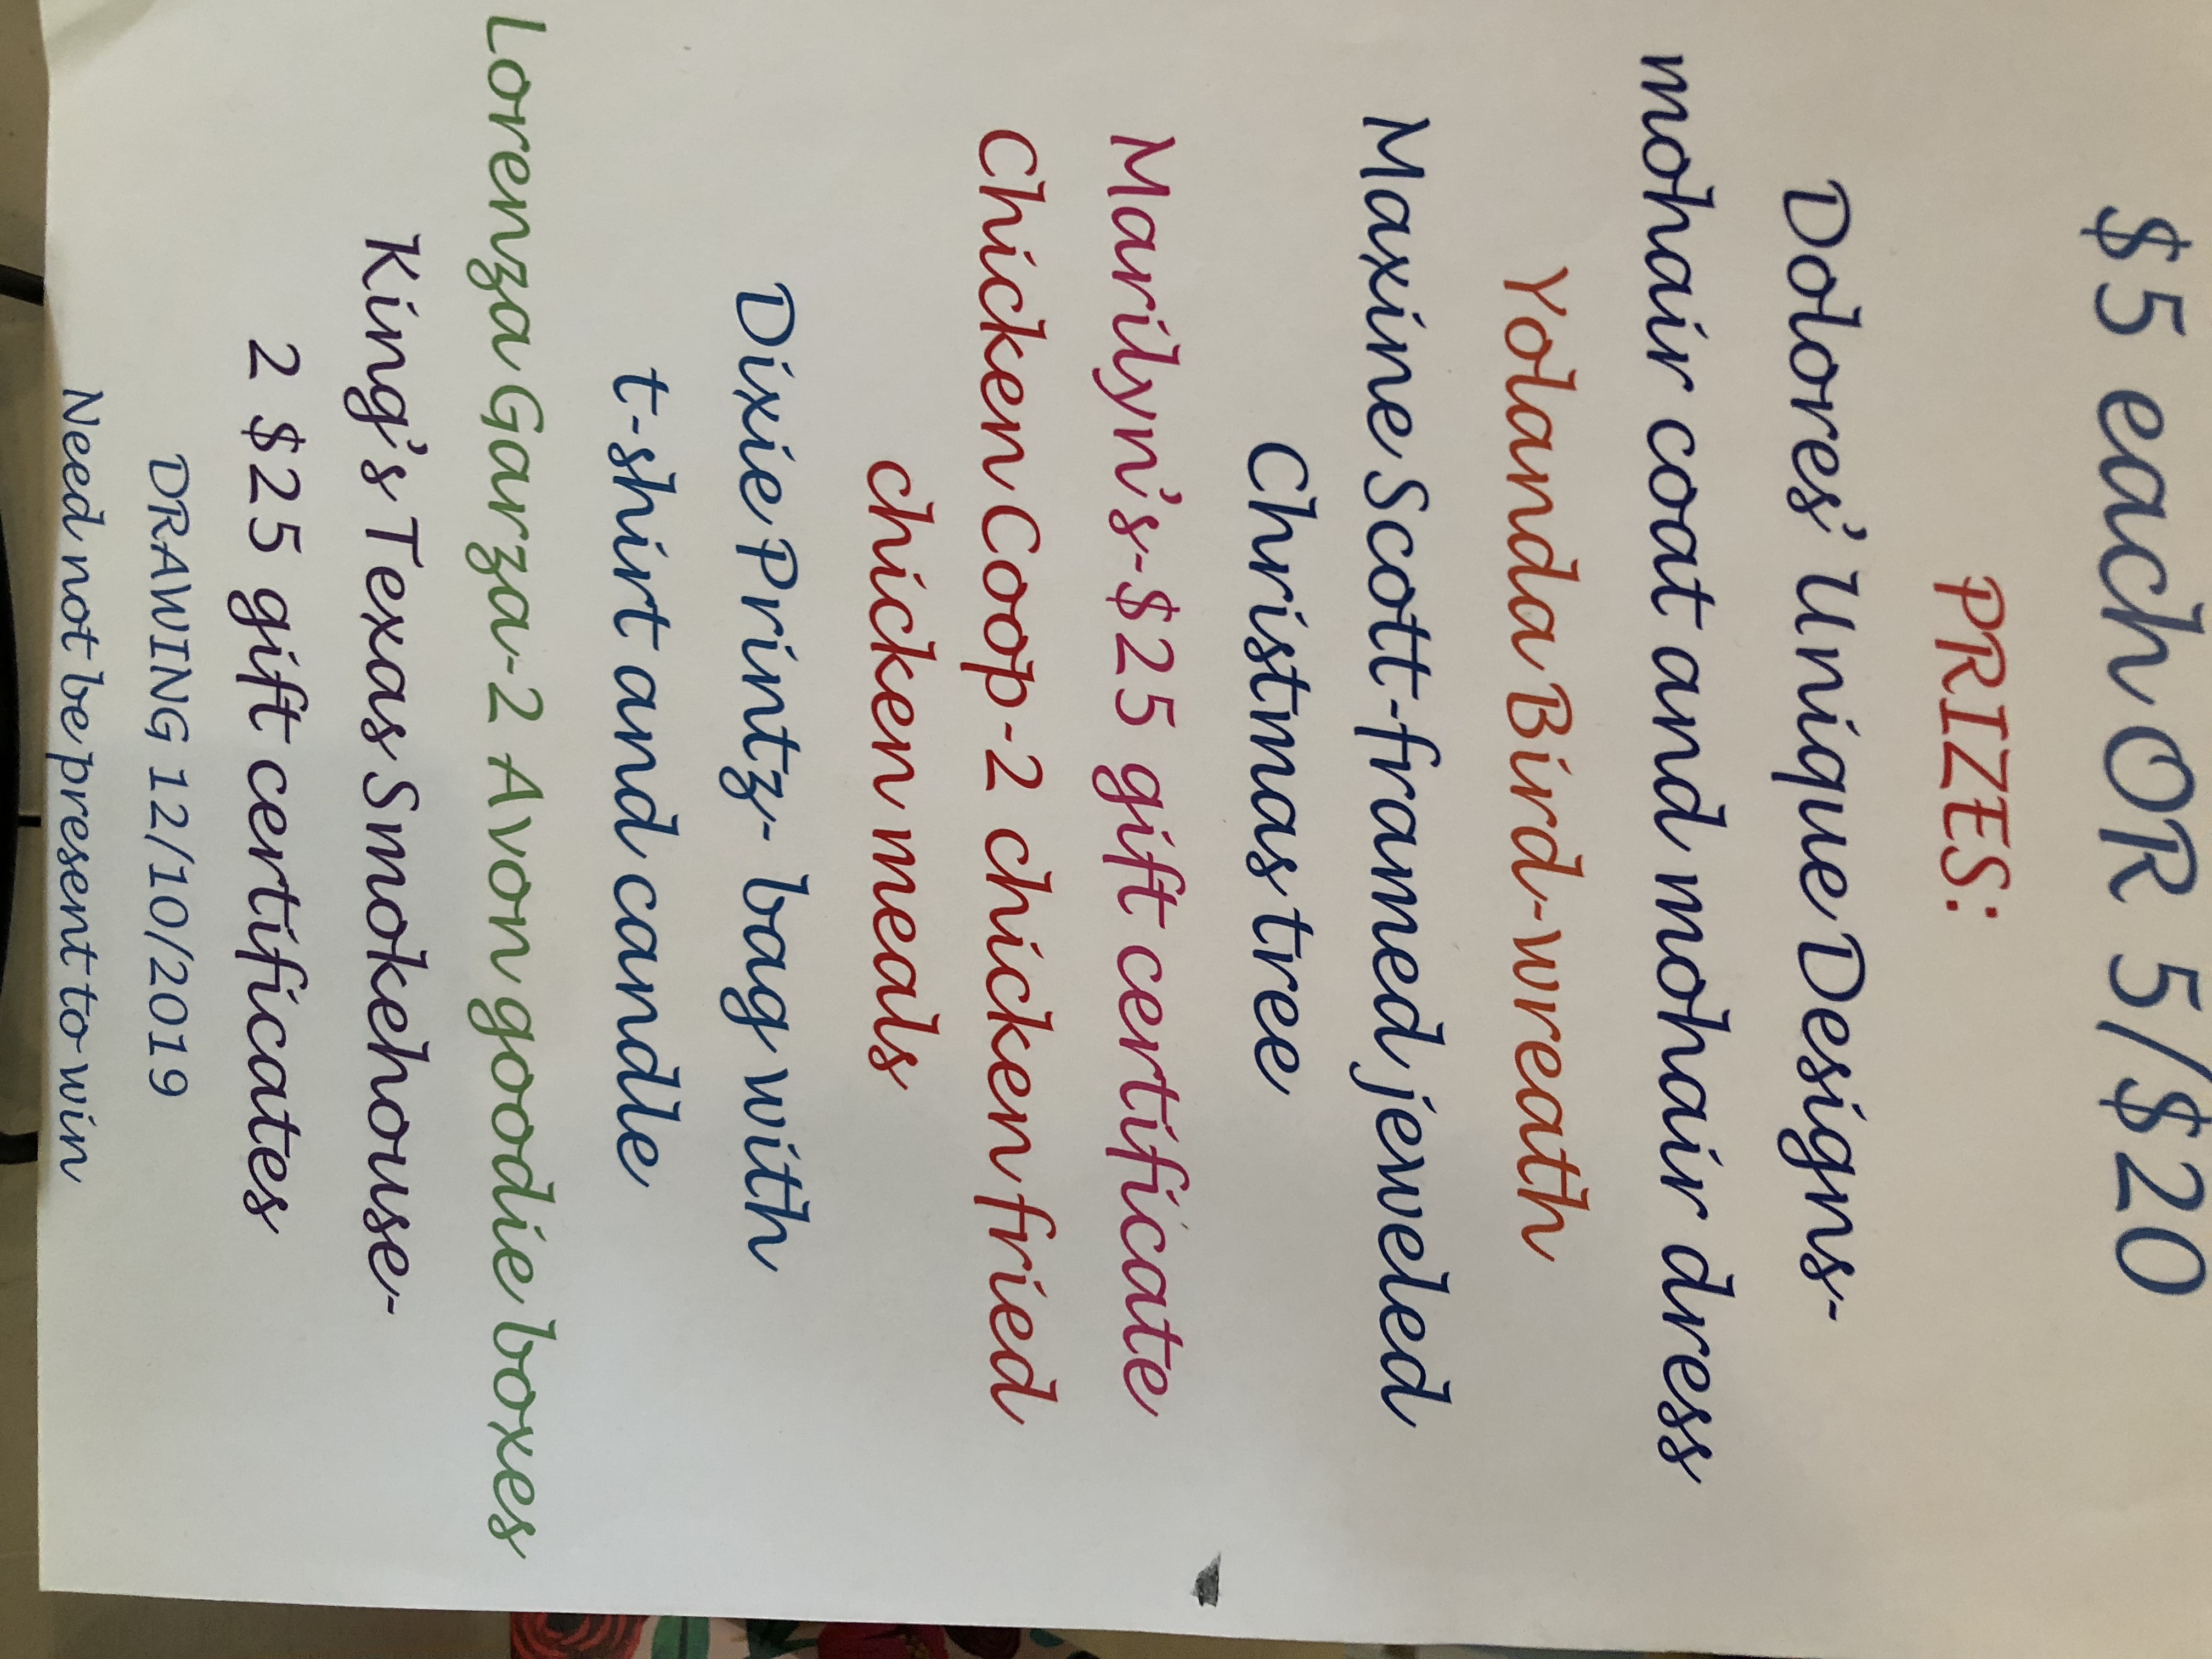 $5 each OR 5/$20
PRIZES:
Dolores' Unique Designs-
mohair coat and mohair dress
Yolanda Bird-wreath
Maxine Scott-framed jeweled
Christmas tree
Marilyn's-$25 gift certificate
Chicken Coop-2 chicken fried
chicken meals
Dixie Printz- bag with
t-shirt and candle
Lorenza Garza-2 Avon goodie boxes
King's Texas Smokehouse-
2 $25 gift certificates
DRAWING 12/10/2019
Need not be present to win